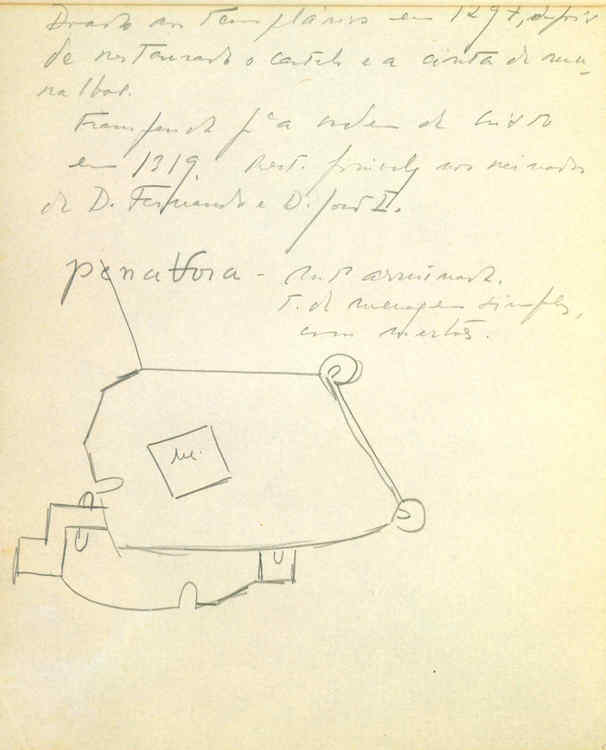 Doado aos Templários em 1297, depois
de restaurado o castelo e a cinta de mu-
ralhas.
Transferido pª a ordem de Cristo
em 1319. Rest. nos reinados
de D. Fernando e D. João II.
penaVora - Muito arruinado.
T. de menagem simples,
com
M.